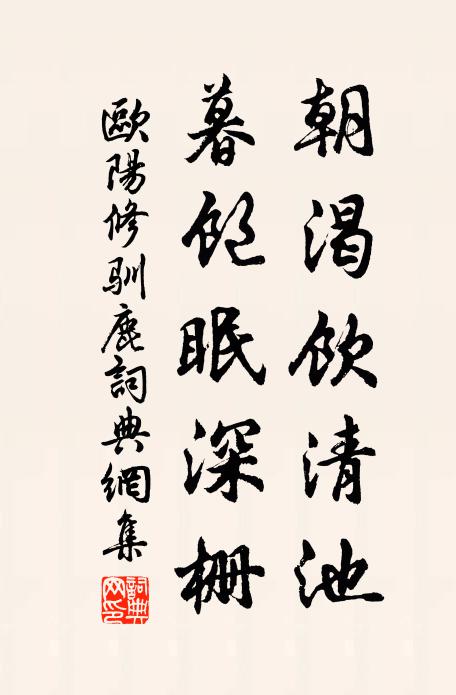 朝渴飲清池
暮飽眠深柵
歐陽修馴鹿詞典網集
詞典網印